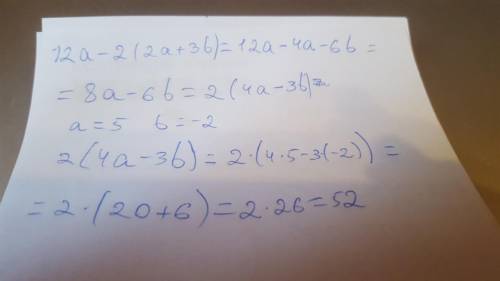 12a-2(2a+3b)=12a-4a-6b=
=8a-6b=2(4a-3b)=
a=5 b=-2
2(4a-3b)=2·(4·5-3(-2))=
=2·(20+6)=2·26=52